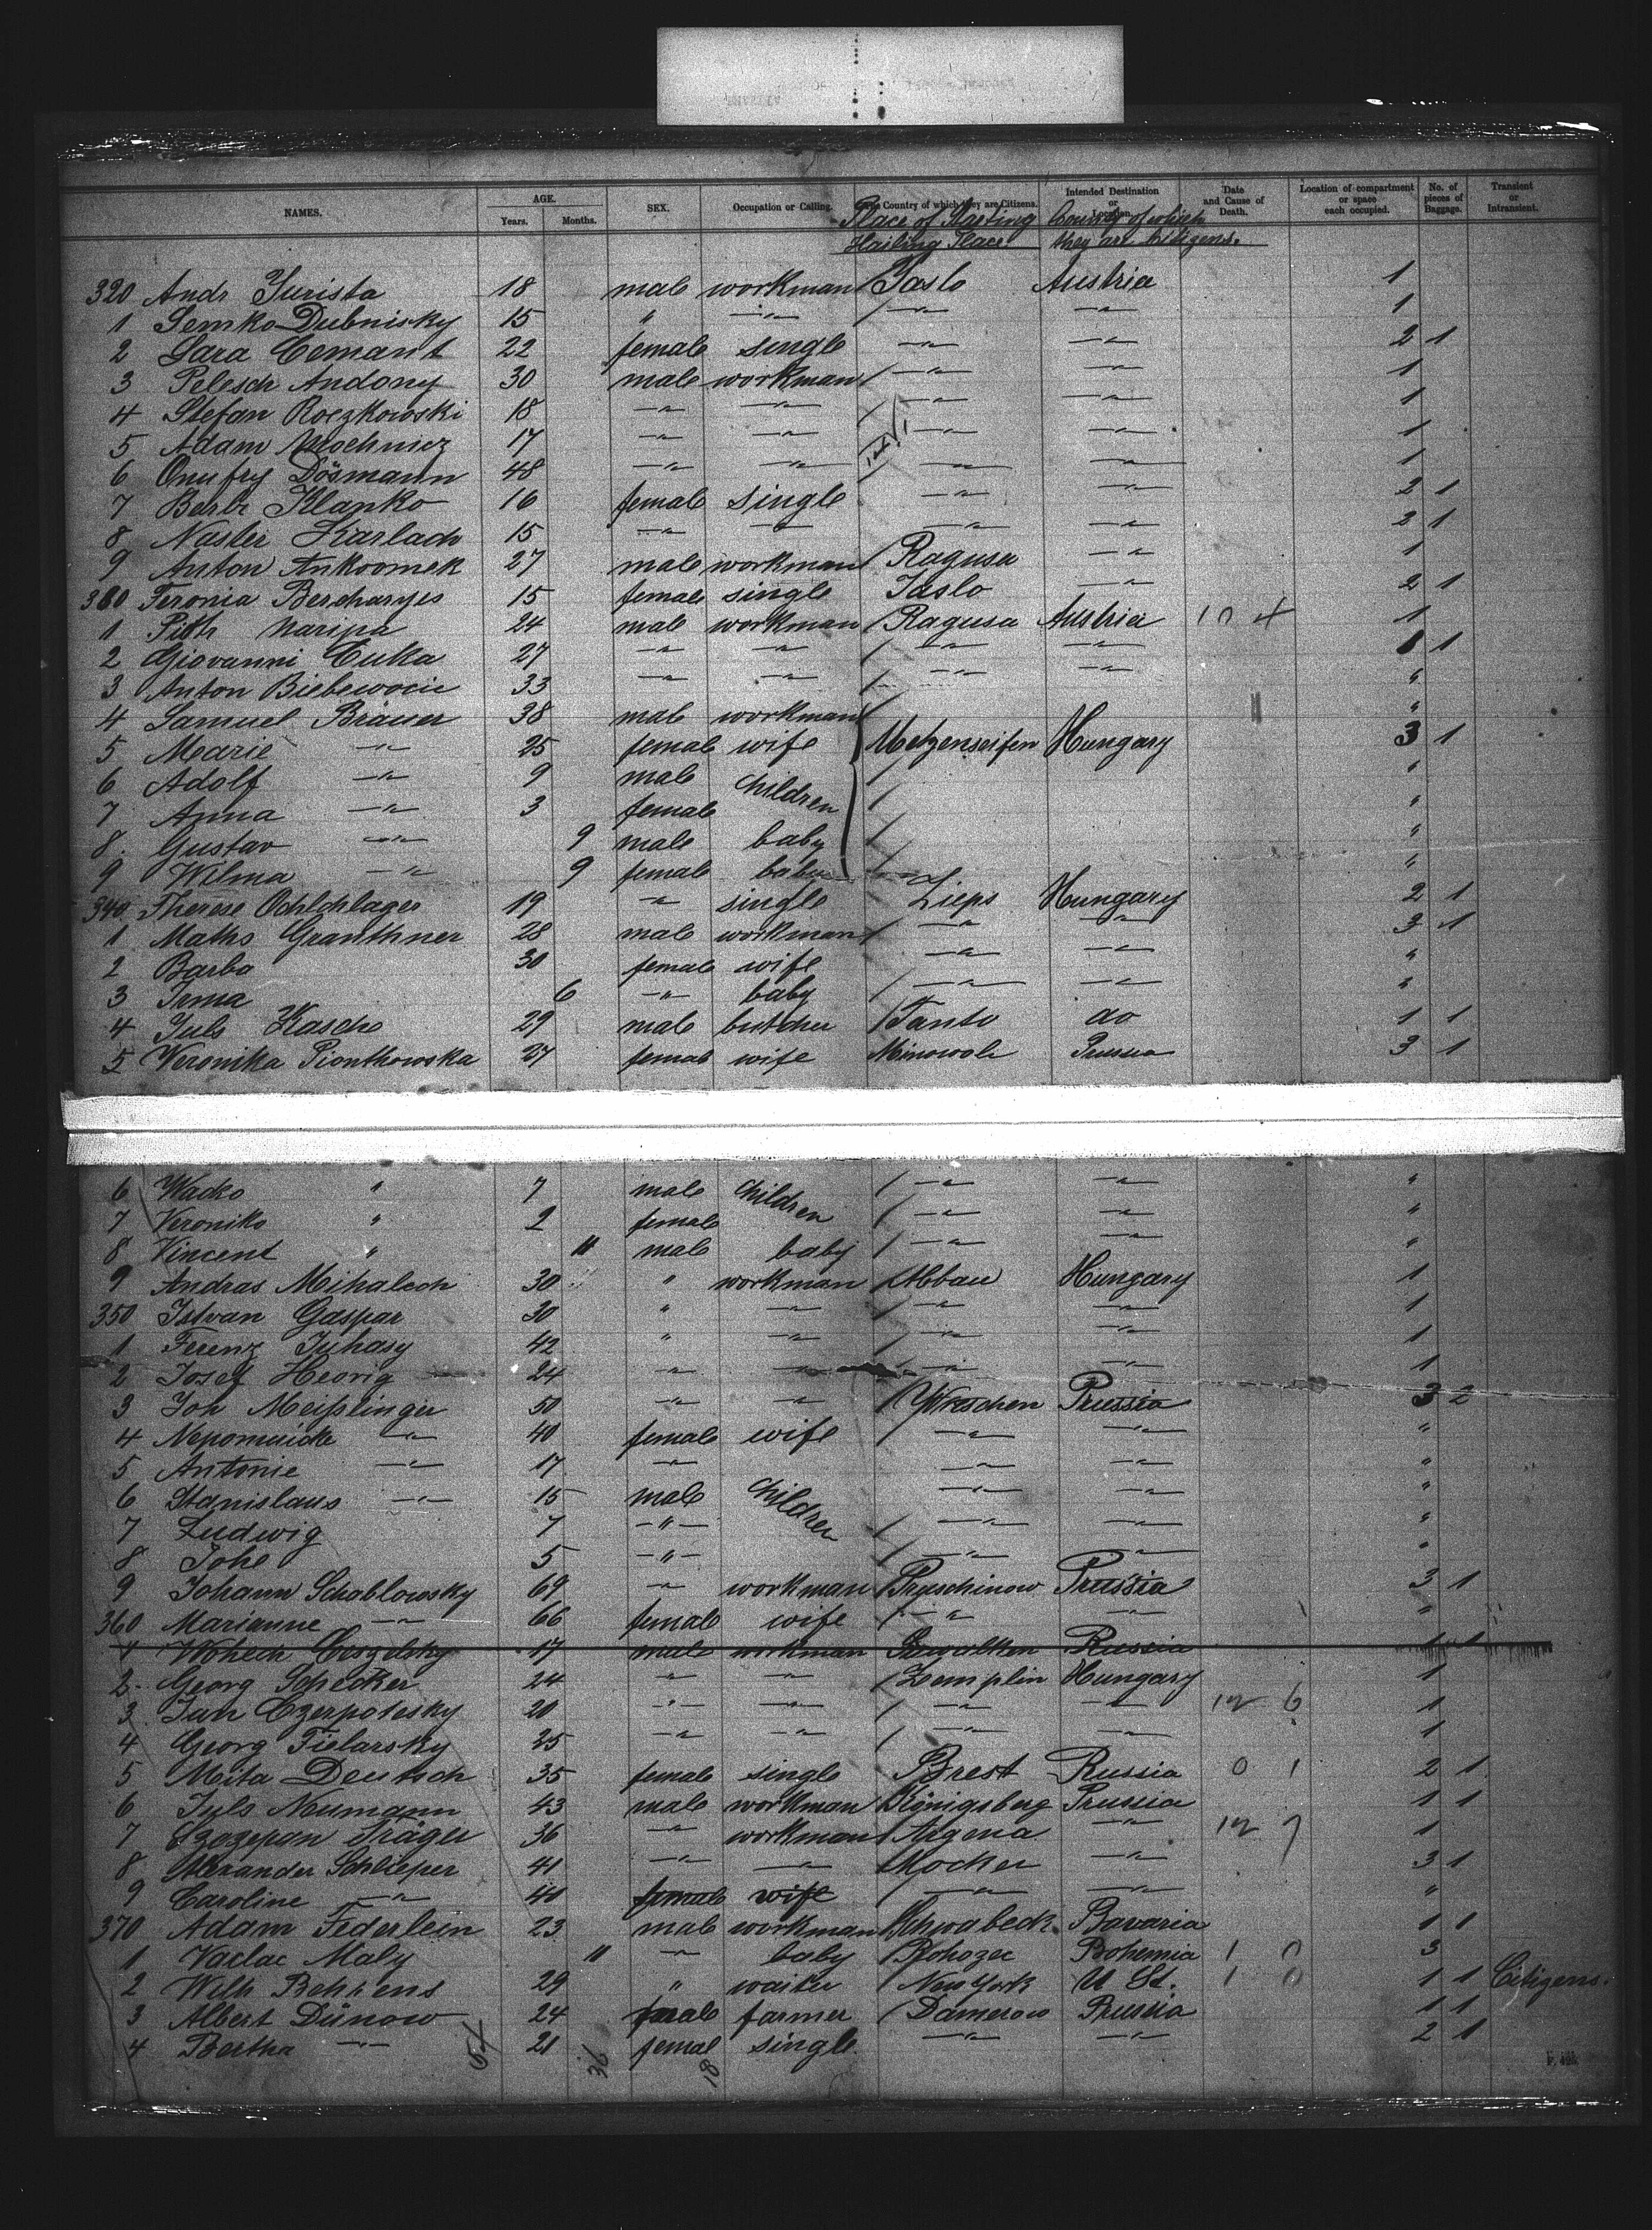 NAMES. AGE. Years. Months. SEX. Occupation or Calling. The Country of which they are Citizens. Intended Destination or Location. Date and Cause of Death. Location of compartment or space each occupied. No. of pieces of Baggage. Transient or Intransient.
Place of Starting Country of which
Hailing Place they are Citizens.
320 Andr Jurista 18 male workman Jaslo Austria 1
1 Semko Dubnisky 15 " —"— —"— —"— 1
2 Sara Cemant 22 female single —"— —"— 2 1
3 Pelesch Andony 30 male workman —"— —"— 1
4 Stefan Roczkowski 18 —"— —"— —"— —"— 1
5 Adam 17 —"— —"— —"— —"— 1
6 Onufry Dösmann 48 —"— —"— —"— —"— 1
7 Berbr Klanko 16 female single —"— —"— 2 1
8 Naster Karlach 15 —"— —"— —"— —"— 2 1
9 Anton 27 male workman Ragusa —"— 1
330 Feronia Bercharyes 15 female single Jaslo —"— 2 1
1 Naripa 24 male workman Ragusa Austria 10 4 1
2 Giovanni Cuka 27 —"— —"— —"— —"— 1 1
3 Anton Biebewocic 33 —"— —"— —"— —"— "
4 Samuel Bräuer 38 male workman "
5 Marie —"— 25 female wife Metzenseifen Hungary 3 1
6 Adolf —"— 9 male children "
7 Anna —"— 3 female "
8 Gustav —"— 9 male baby "
9 Wilma —"— 9 female baby "
340 Therese Ochlschlager 19 —"— single Zieps Hungary 2 1
1 Maths Granthner 28 male workman —"— —"— 3 1
2 Barba 30 female wife —"— —"— "
3 Irma 6 —"— baby —"— —"— "
4 Juls Kascho 29 male butcher Tanto do 1 1
5 Veronika Pionthowska 27 female wife Minowole Prussia 3 1
6 Wacko " 7 male children —"— —"— "
7 Veroniko " 2 female —"— —"— "
8 Vincent " 11 male baby —"— —"— "
9 Andras Mihalech 30 " workman Abbau Hungary 1
350 Istvan Gaspar 30 " —"— —"— —"— 1
1 Ferenz Juhasy 42 " —"— —"— —"— 1
2 Josef Heorig 24 —"— —"— —"— —"— 1
3 Joh Meißlinger 50 —"— —"— Wreschen Prussia 3 2
4 Nepomucke —"— 40 female wife —"— —"— "
5 Antonie —"— 17 —"— —"— —"— "
6 Stanislaus —"— 15 male children —"— —"— "
7 Ludwig 7 —"— —"— —"— "
8 Johe 5 —"— —"— —"— "
9 Johann Schablowsky 69 —"— workman Pruschinow Prussia 3 1
360 Marianne —"— 66 female wife —"— —"— "
1 Wohech Ceszelsky 17 male workman Suwalken Russia 1 1
2 Georg Schecker 24 —"— —"— Zemplin Hungary 1
3 Jan Czerpotesky 20 —"— —"— —"— —"— 12 6 1
4 Georg Fielarsky 25 —"— —"— —"— —"— 1
5 Mita Deutsch 35 female single Brest Russia 0 1 2 1
6 Juls Neumann 43 male workman Königsberg Prussia 1 1
7 Czozepan Träger 36 —"— workman Argena —"— 12 7 1
8 Alexander Schlieper 41 —"— —"— Mocker —"— 3 1
9 Caroline —"— 41 female wife —"— —"— "
370 Adam Federlein 23 male workman Schwabeck Bavaria 1 1
1 Vaclac Maly 11 —"— baby Rohozec Bohemia 1 0 3
2 Wilh Behrens 29 " waiter New York U St. 1 0 1 1 Citizens.
3 Albert Dünow 24 male farmer Damerow Prussia 1 1
4 Bertha —"— 21 female single —"— —"— 2 1
54 36 18